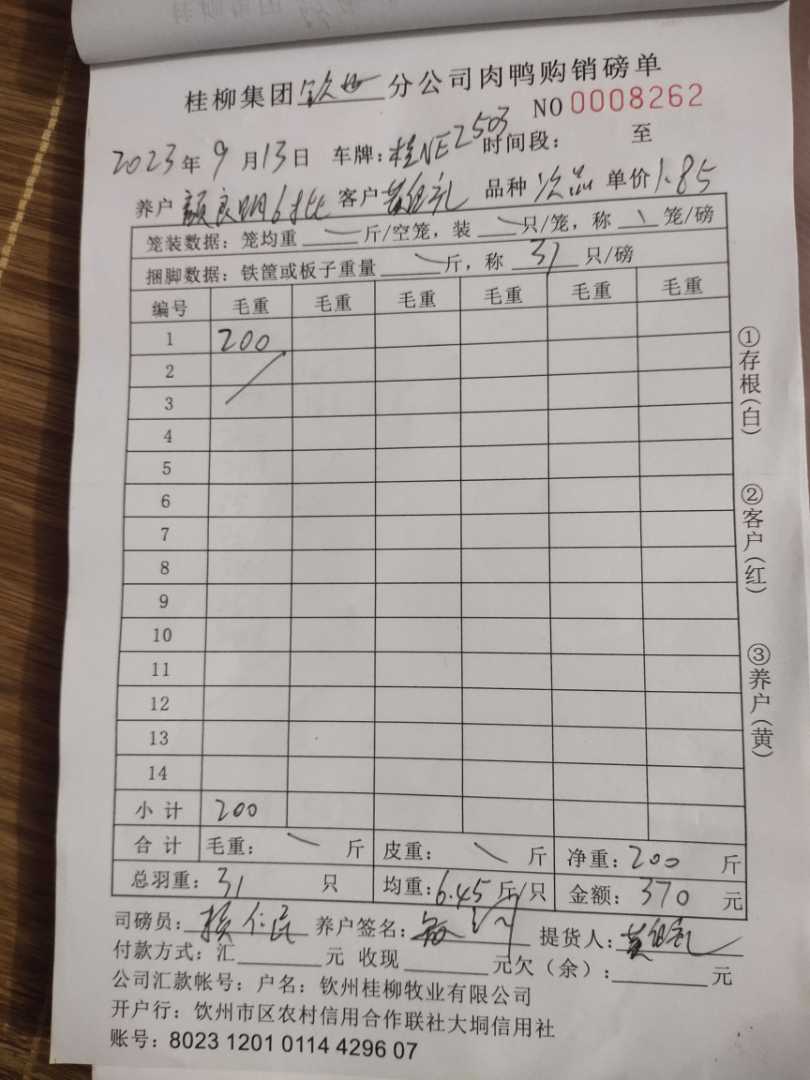 桂柳集团钦州分公司肉鸭购销磅单
NO 0008262
2023年9月13日 车牌:桂NE2503 时间段: 至
养户 良明6批 客户 黄 礼 品种 次品 单价1.85
笼装数据:笼均重 \ 斤/空笼,装 \ 只/笼,称 \ 笼/磅
捆脚数据:铁筐或板子重量 \ 斤,称 31 只/磅
编号 毛重 毛重 毛重 毛重 毛重 毛重
1 200
2
3
4
5
6
7
8
9
10
11
12
13
14
小计 200
合计 毛重: \ 斤 皮重: \ 斤 净重:200 斤
总羽重:31 只 均重:6.45斤/只 金额:370 元
司磅员: 仁民 养户签名: 提货人:黄 礼
付款方式:汇 元 收现 元欠(余): 元
公司汇款帐号:户名:钦州桂柳牧业有限公司
开户行:钦州市区农村信用合作联社大垌信用社
账号:8023 1201 0114 4296 07
①存根(白)
②客户(红)
③养户(黄)